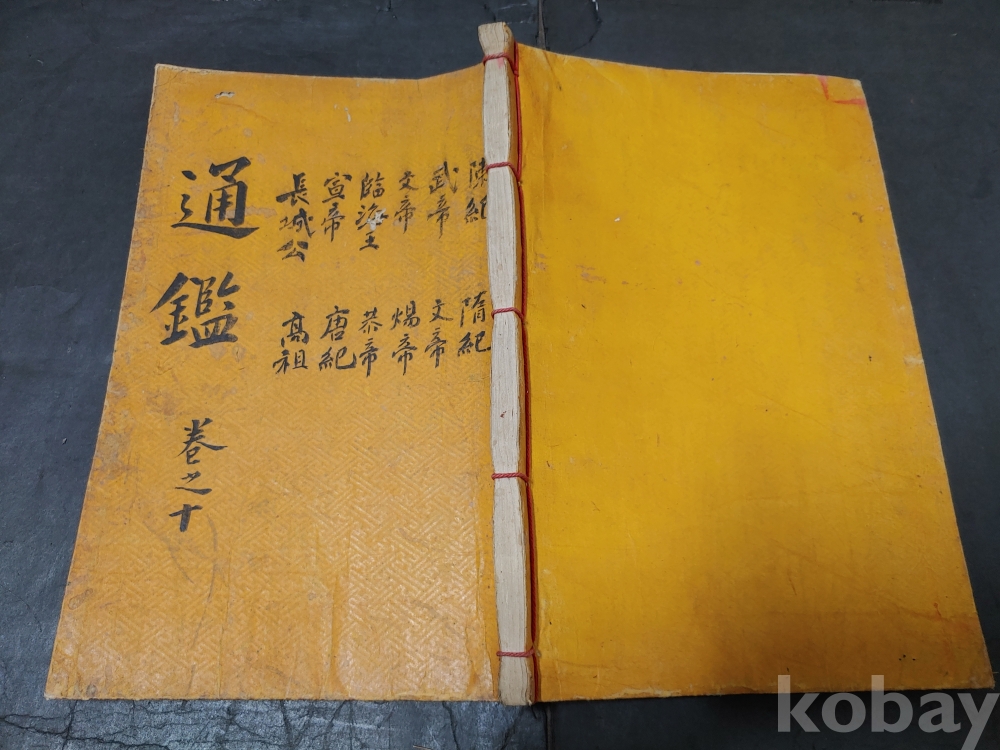 通鑑 卷之十
陳紀 隋紀
武帝 文帝
文帝 煬帝
臨海王 恭帝
宣帝 唐紀
長城公 高祖
kobay